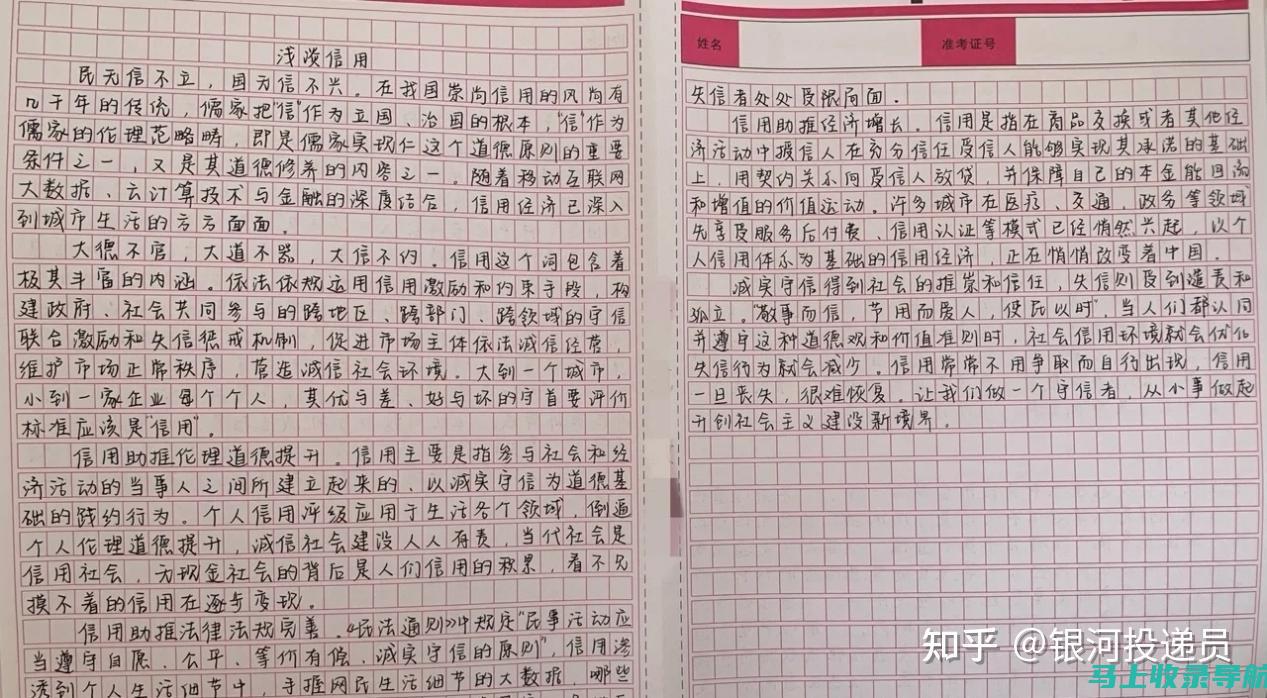 浅谈信用
民无信不立，国为信不兴。在我国崇尚信用的风尚有
几千年的传统，儒家把"信"作为立国、治国的根本，"信"作为
儒家的伦理范略畴，即是儒家实现仁这个道德原则的重要
条件之一，又是其道德修养的内容之一。随着移动互联网
大数据、云计算技术与金融的深度结合，信用经济已深入
到城市生活的方方面面。
大德不官，大道不器，大信不约。信用这个词包含着
极其丰富的内涵。依法依规运用信用激励和约束手段，构
建政府、社会共同参与的跨地区、跨部门、跨领域的守信
联合激励和失信惩戒机制，促进市场主体依法诚信经营，
维护市场正常秩序，营造诚信社会环境。大到一个城市，
小到一家企业每个个人，其优与差、好与坏的守首要评价
标准应该是"信用"。
信用助推伦理道德提升。信用主要是指参与社会和经
济活动的当事人之间所建立起来的、以诚实守信为道德基
础的践约行为。个人信用评级应用于生活各个领域，倒逼
个人伦理道德提升，诚信社会建设人人有责，当代社会是
信用社会，为现金社会的背后是人们信用的积累，看不见
摸不着的信用在逐步变现。
信用助推法律法规完善。《民法通则》中规定"民事活动应
当遵守自愿、公平、等价有偿、诚实守信的原则"，信用渗
透到个人生活细节中，手握网民生活细节的大数据，哪些
姓名
准考证号
失信者处处受限局面．
信用助推经济增长。信用是指在商品交换或者其他经
济活动中授信人在充分信任受信人能够实现其承诺的基础
上，用契约关系向受信人放贷，并保障自己的本金能回流
和增值的价值运动。许多城市在医疗、交通，政务等领域
先享受服务后付费、信用认证等模式已经悄然兴起，以个
人信用体系为基础的信用经济，正在悄悄改变着中国．
诚实守信得到社会的推崇和信任，失信则受到谴责和
孤立。"敬事而信，节用而爱人，使民以时"，当人们都认同
并遵守这种道德观和价值准则时，社会信用环境就会优化
失信行为就会减少。信用常常不用争取而自行出现，信用
一旦丧失，很难恢复。让我们做一个守信者，从小事做起
开创社会主义建设新境界．
知乎 @银河投递员
马上收录导航